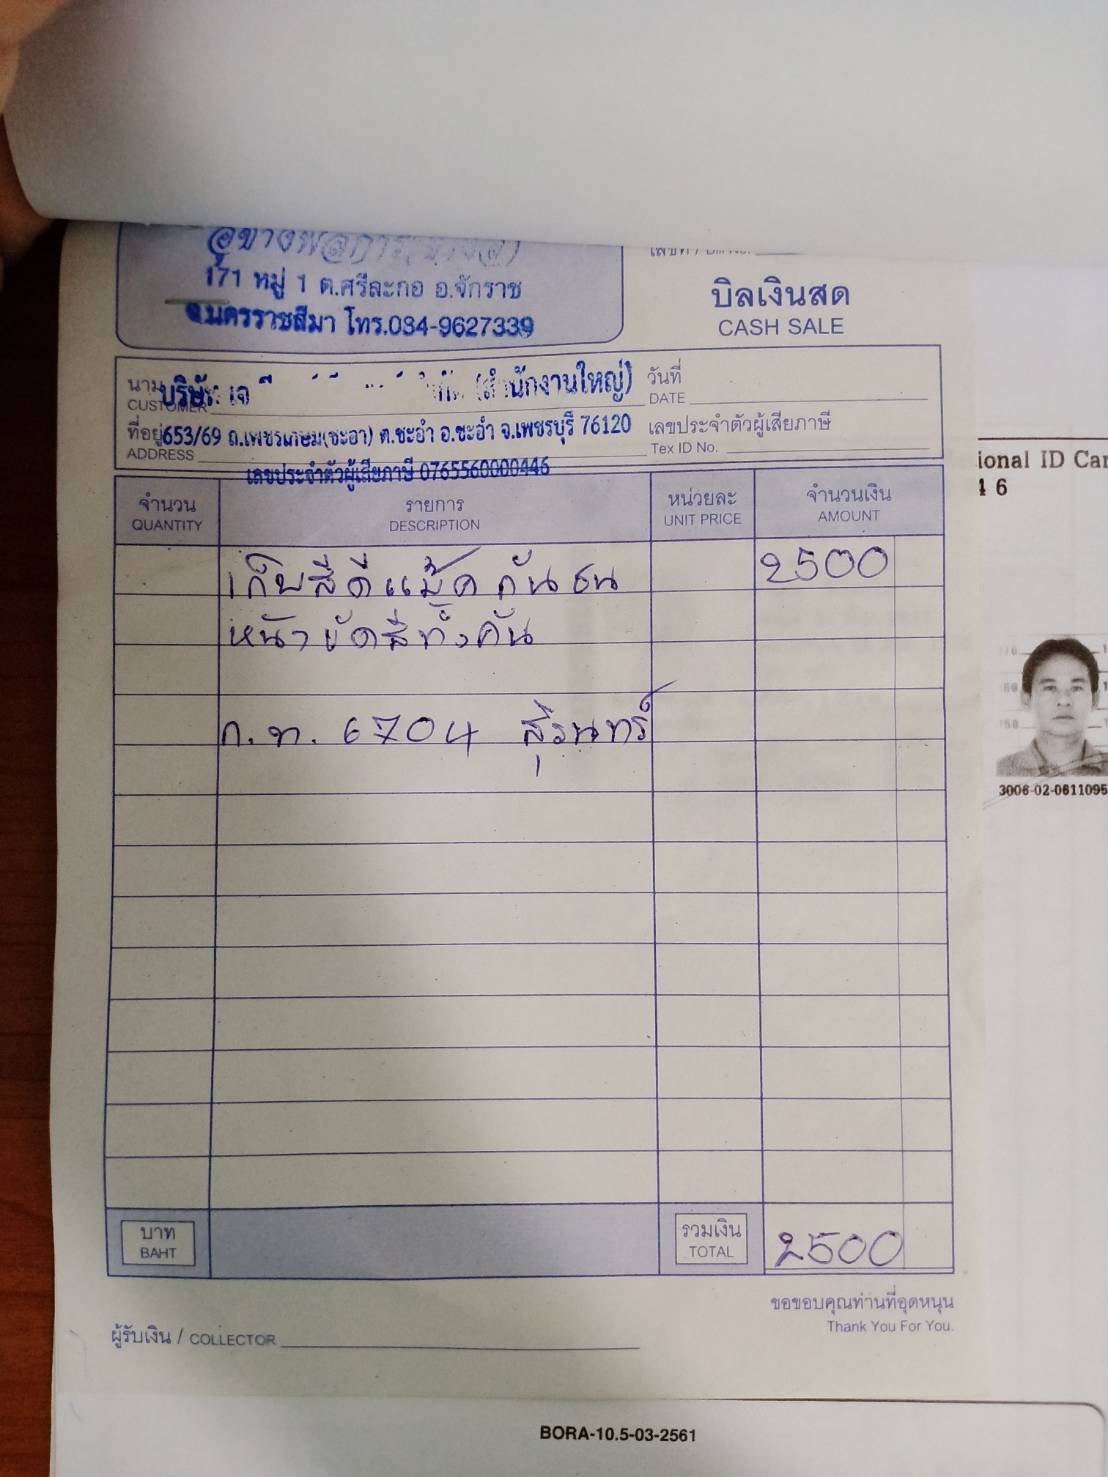 171 หมู่ 1 ต.ศรีละกอ อ.จักราช
จ.นครราชสีมา โทร.034-9627339
บิลเงินสด
CASH SALE
นาม บริษัท เจ (สำนักงานใหญ่)
CUSTOMER
วันที่
DATE
ที่อยู่ 653/69 ถ.เพชรเกษม(ชะอำ) ต.ชะอำ อ.ชะอำ จ.เพชรบุรี 76120
ADDRESS
เลขประจำตัวผู้เสียภาษี
Tex ID No.
เลขประจำตัวผู้เสียภาษี 0765560000446
จำนวน รายการ หน่วยละ จำนวนเงิน
QUANTITY DESCRIPTION UNIT PRICE AMOUNT
เก็บสีดีแม้ค กันชน 2500
หน้า ขัดสีทั้งคัน
ก.ท. 6704 สุรินทร์
บาท
BAHT
รวมเงิน
TOTAL
2500
ขอขอบคุณท่านที่อุดหนุน
Thank You For You.
ผู้รับเงิน / COLLECTOR
ional ID Car
4 6
3006-02-0611095
BORA-10.5-03-2561